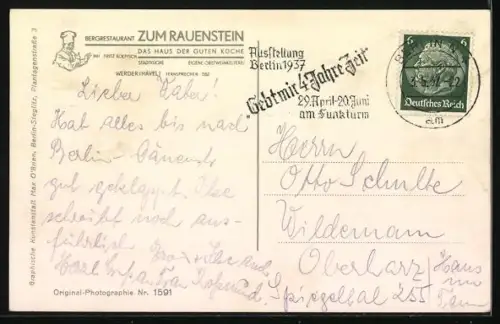 BERGRESTAURANT ZUM RAUENSTEIN
DAS HAUS DER GUTEN KÜCHE
WERDER (HAVEL)
Ausstellung
Berlin 1937
"Gebt mir 4 Jahre Zeit"
29. April - 20. Juni
am Funkturm
6 6
Deutsches Reich
BERLIN
Lieber Vater!
Hat alles bis nach
Berlin-
gut geklappt. Ilse
schreibt noch aus-
führlich.
Herrn
Otto Schulte
Wildemann
Oberharz
Spiegelthal 255
Haus
Graphische Kunstanstalt Max O'Brien, Berlin-Steglitz, Plantagenstraße 3
Original-Photographie Nr. 1591